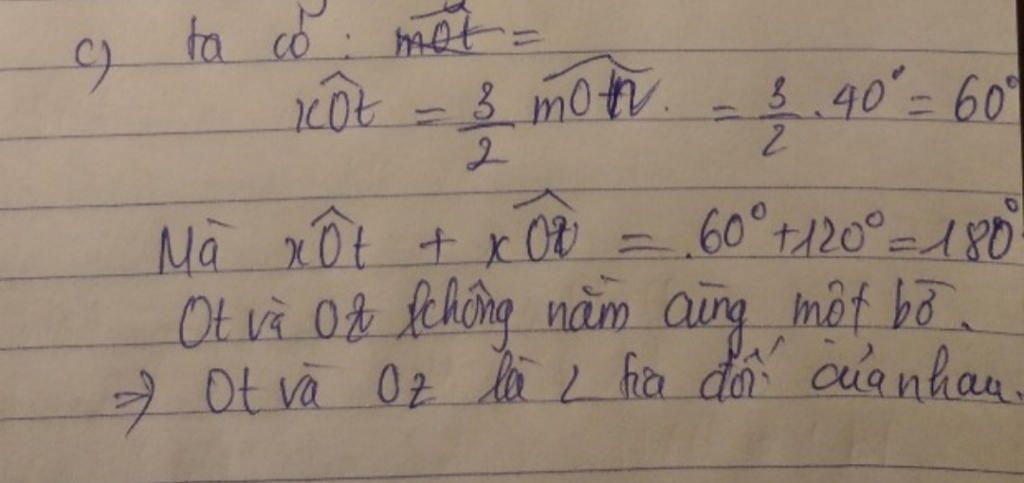 c) ta có : mOt =
xÔt = 3/2 mOn. = 3/2 . 40° = 60°
Mà xÔt + xÔz = .60° + 120° = 180°
Ot và Oz không nằm cùng một bờ.
=> Ot và Oz là 2 tia đối của nhau.